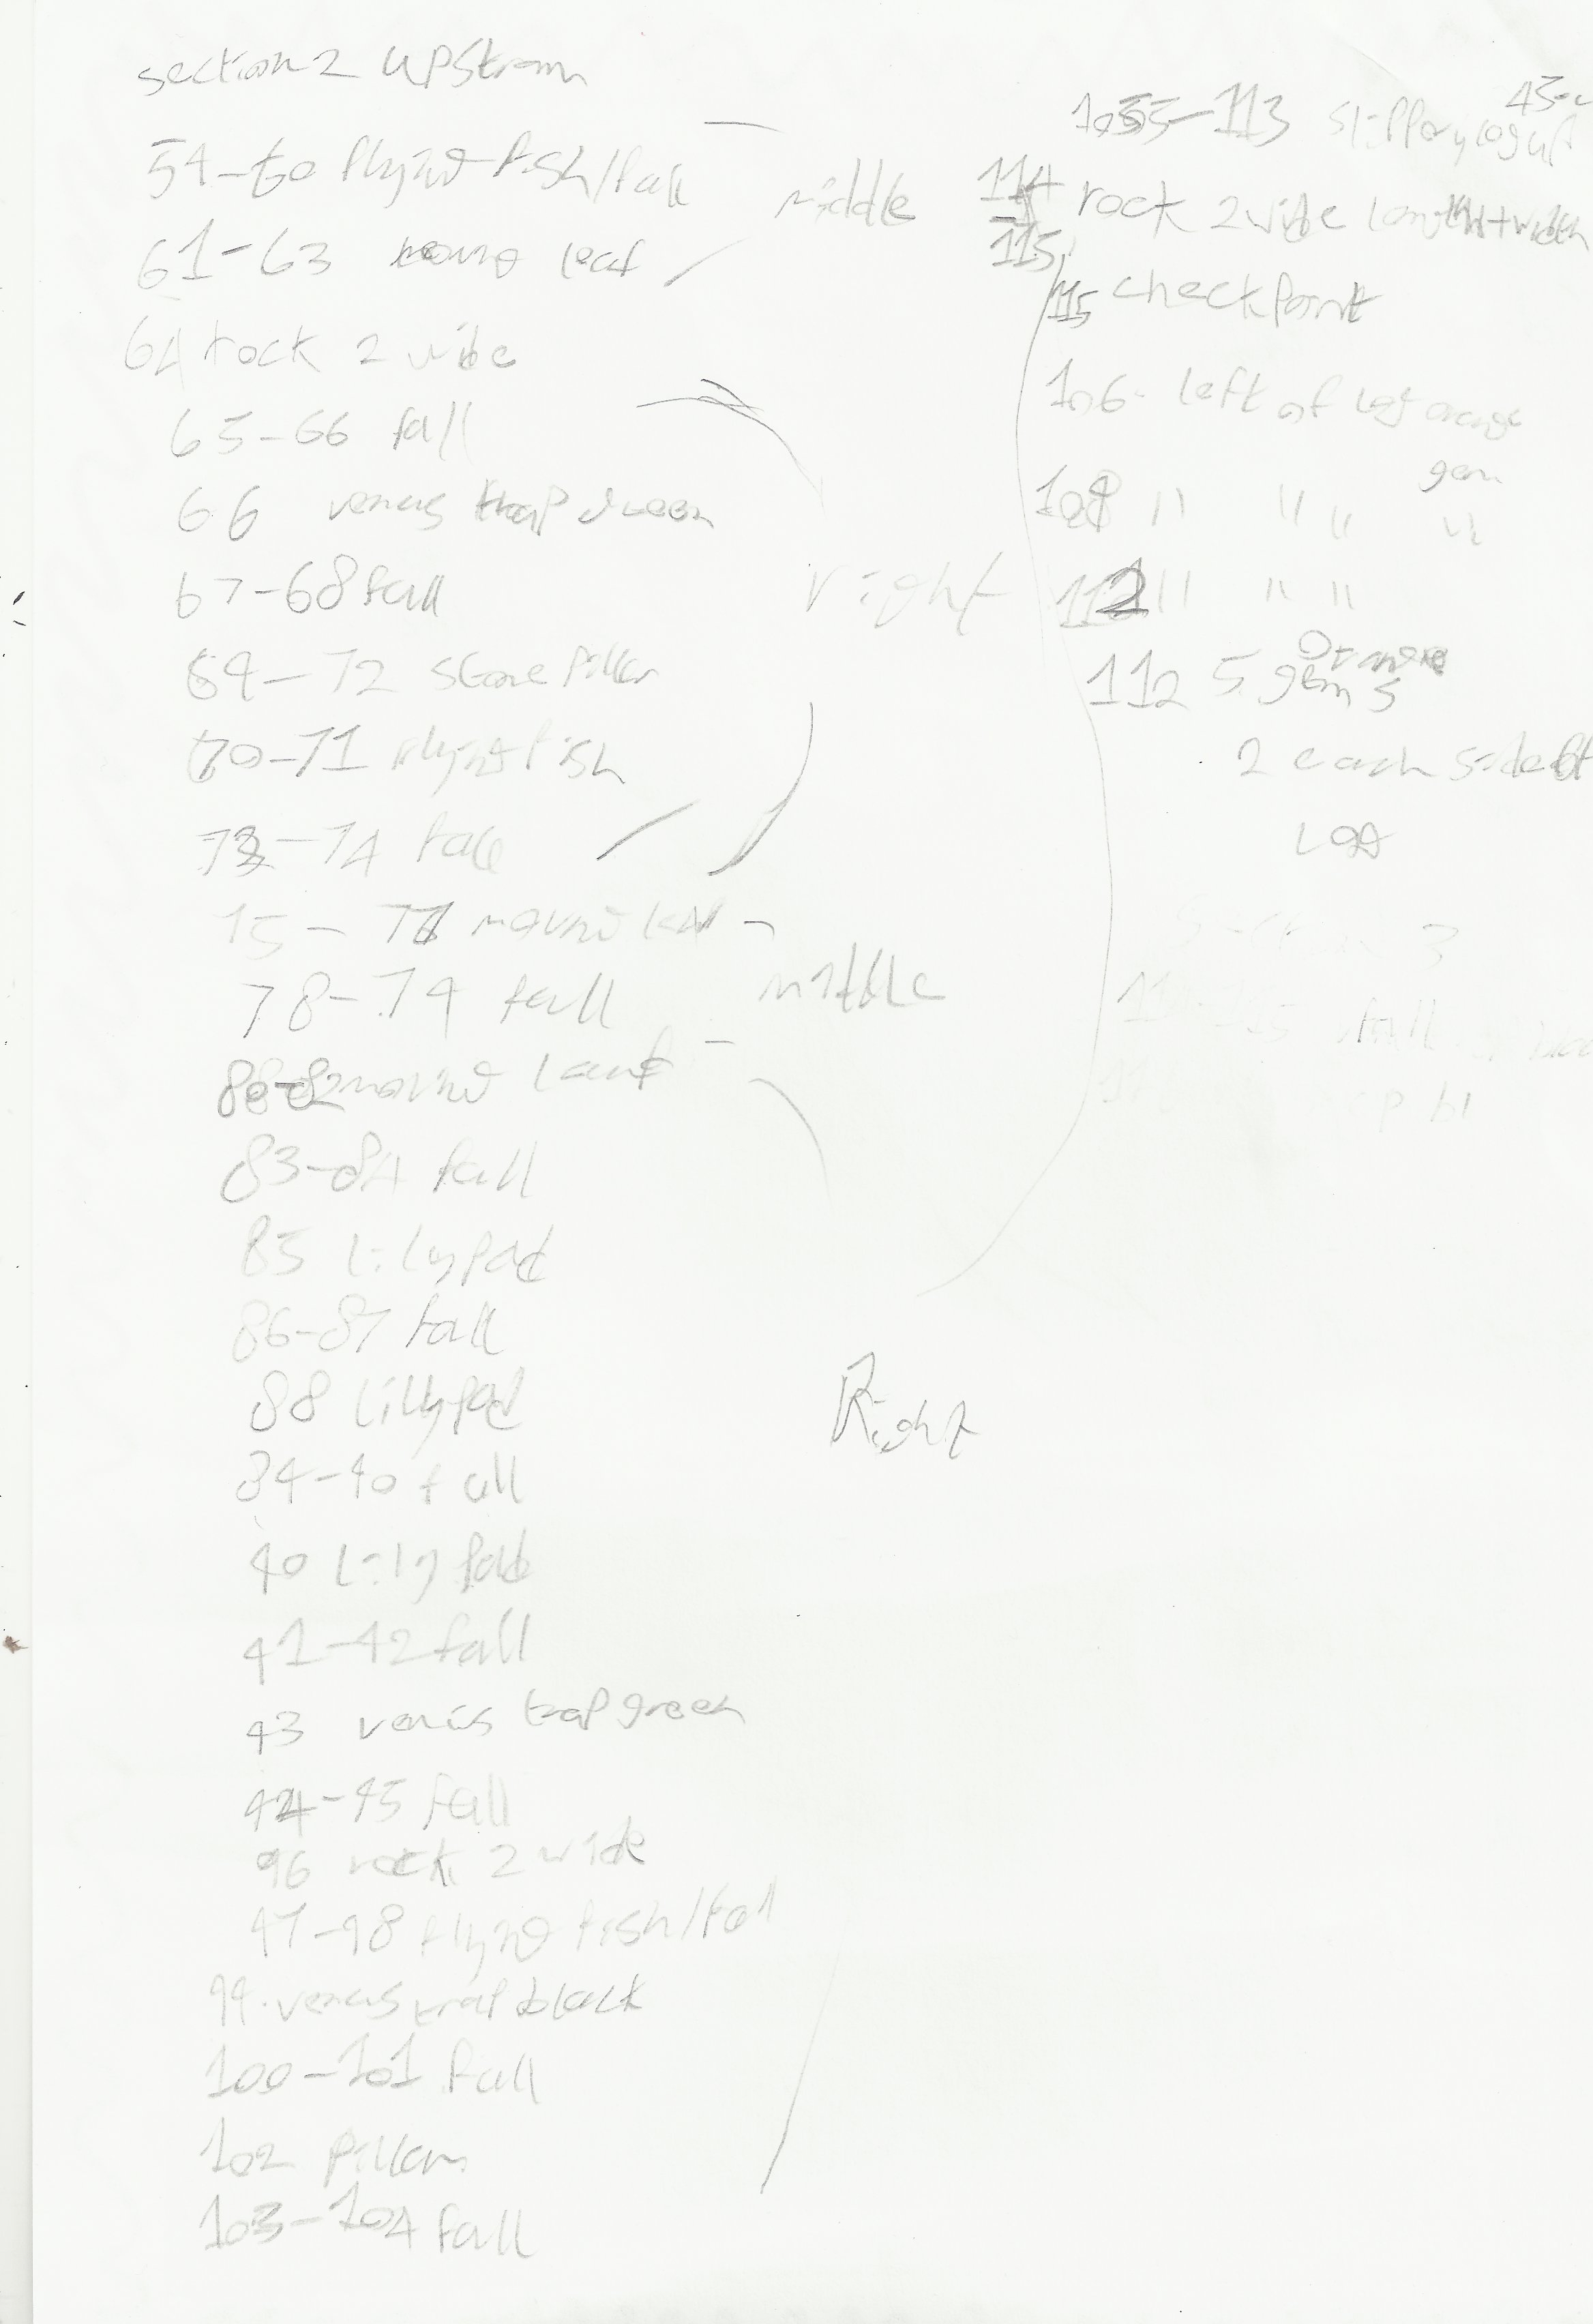 section 2 upstream
54-60 flying fish/fall
middle
61-63 moving leaf
64 rock 2 wide
65-66 fall
66 venus trap green
67-68 fall
right
69-72 stone piller
70-71 flying fish
73-74 fall
75-77 moving leaf
78-79 fall
middle
80-82 moving leaf
83-84 fall
85 lilypad
86-87 fall
88 lillypad
Right
89-90 fall
90 lilypad
91-92 fall
93 venus trap green
94-95 fall
96 rock 2 wide
97-98 flying fish/fall
99. venus trap black
100-101 fall
102 pillem
103-104 fall
105-113 slippery log up
114 rock 2 wide length + width
-115
115 checkpoint
106- left of log orange
gem
108 " " " "
112 " " "
112 5 orange
gems
2 each side of
Log
Section 3